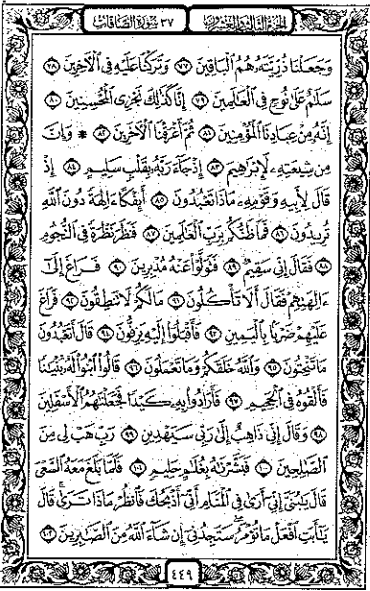 الجزء الثالث والعشرون ٣٧ سورة الصافات
وَجَعَلْنَا ذُرِّيَّتَهُۥ هُمُ ٱلْبَاقِينَ ٧٧ وَتَرَكْنَا عَلَيْهِ فِى ٱلْأَخِرِينَ ٧٨
سَلَٰمٌ عَلَىٰ نُوحٍ فِى ٱلْعَٰلَمِينَ ٧٩ إِنَّا كَذَٰلِكَ نَجْزِى ٱلْمُحْسِنِينَ ٨٠
إِنَّهُۥ مِنْ عِبَادِنَا ٱلْمُؤْمِنِينَ ٨١ ثُمَّ أَغْرَقْنَا ٱلْأَخَرِينَ ٨٢ ۞ وَإِنَّ
مِن شِيعَتِهِۦ لَإِبْرَٰهِيمَ ٨٣ إِذْ جَآءَ رَبَّهُۥ بِقَلْبٍ سَلِيمٍ ٨٤ إِذْ
قَالَ لِأَبِيهِ وَقَوْمِهِۦ مَاذَا تَعْبُدُونَ ٨٥ أَئِفْكًا ءَالِهَةً دُونَ ٱللَّهِ
تُرِيدُونَ ٨٦ فَمَا ظَنُّكُم بِرَبِّ ٱلْعَٰلَمِينَ ٨٧ فَنَظَرَ نَظْرَةً فِى ٱلنُّجُومِ
٨٨ فَقَالَ إِنِّى سَقِيمٌ ٨٩ فَتَوَلَّوْا۟ عَنْهُ مُدْبِرِينَ ٩٠ فَرَاغَ إِلَىٰٓ
ءَالِهَتِهِمْ فَقَالَ أَلَا تَأْكُلُونَ ٩١ مَا لَكُمْ لَا تَنطِقُونَ ٩٢ فَرَاغَ
عَلَيْهِمْ ضَرْبًۢا بِٱلْيَمِينِ ٩٣ فَأَقْبَلُوٓا۟ إِلَيْهِ يَزِفُّونَ ٩٤ قَالَ أَتَعْبُدُونَ
مَا تَنْحِتُونَ ٩٥ وَٱللَّهُ خَلَقَكُمْ وَمَا تَعْمَلُونَ ٩٦ قَالُوا۟ ٱبْنُوا۟ لَهُۥ بُنْيَٰنًا
فَأَلْقُوهُ فِى ٱلْجَحِيمِ ٩٧ فَأَرَادُوا۟ بِهِۦ كَيْدًا فَجَعَلْنَٰهُمُ ٱلْأَسْفَلِينَ
٩٨ وَقَالَ إِنِّى ذَاهِبٌ إِلَىٰ رَبِّى سَيَهْدِينِ ٩٩ رَبِّ هَبْ لِى مِنَ
ٱلصَّٰلِحِينَ ١٠٠ فَبَشَّرْنَٰهُ بِغُلَٰمٍ حَلِيمٍ ١٠١ فَلَمَّا بَلَغَ مَعَهُ ٱلسَّعْىَ
قَالَ يَٰبُنَىَّ إِنِّىٓ أَرَىٰ فِى ٱلْمَنَامِ أَنِّىٓ أَذْبَحُكَ فَٱنظُرْ مَاذَا تَرَىٰ قَالَ
يَٰٓأَبَتِ ٱفْعَلْ مَا تُؤْمَرُ سَتَجِدُنِىٓ إِن شَآءَ ٱللَّهُ مِنَ ٱلصَّٰبِرِينَ ١٠٢
٤٤٩